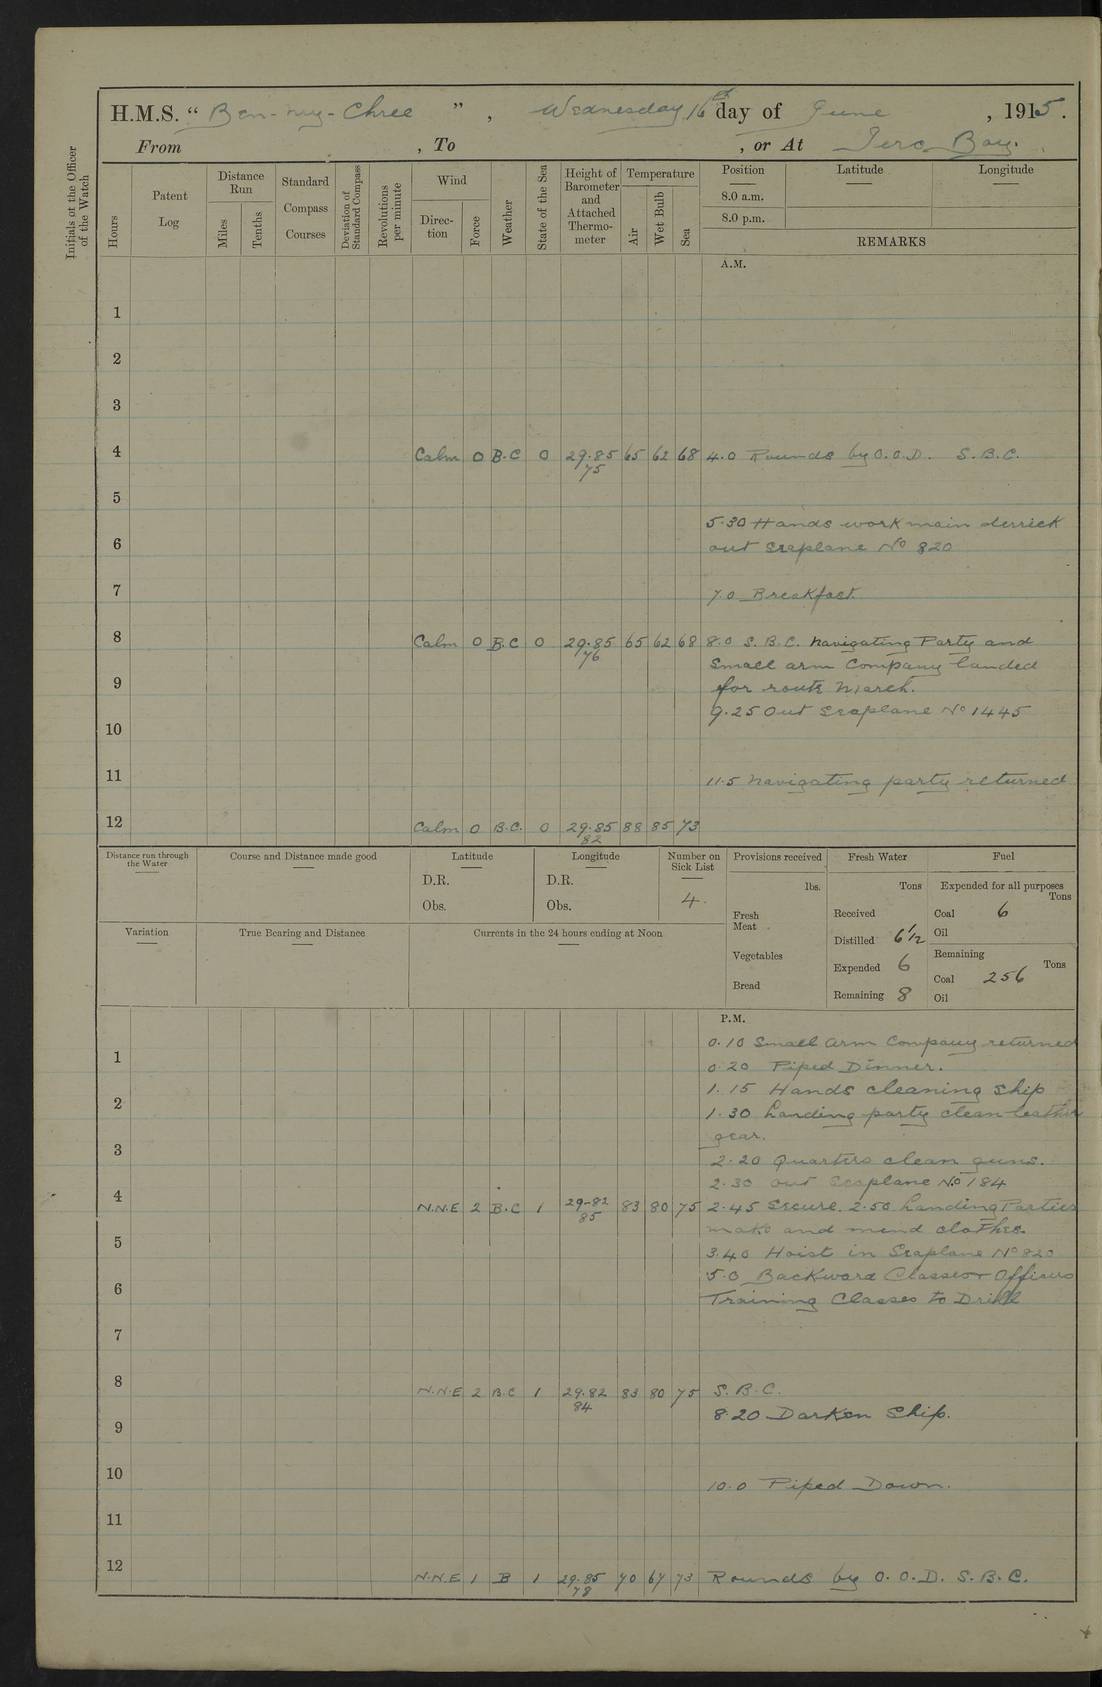 H.M.S. “ Ben-my-Chree ”, Wednesday 16th day of June, 1915.
From , To , or At Iero Bay.
Initials of the Officer of the Watch
Hours
Patent Log
Distance Run
Miles
Tenths
Standard Compass Courses
Deviation of Standard Compass
Revolutions per minute
Wind
Direction
Force
Weather
State of the Sea
Height of Barometer and Attached Thermometer
Temperature
Air
Wet Bulb
Sea
Position Latitude Longitude
8.0 a.m.
8.0 p.m.
REMARKS
A.M.
1
2
3
4 Calm 0 B.C 0 29.85 65 62 68 4.0 Rounds by O.O.D. S.B.C.
75
5
5.30 Hands work main derrick
6 out seaplane No 820
7 7.0 Breakfast
8 Calm 0 B.C 0 29.85 65 62 68 8.0 S.B.C. Navigating Party and
76 Small arm Company landed
9 for route march.
9.25 Out Seaplane No 1445
10
11 11.5 Navigating party returned
12 Calm 0 B.C. 0 29.85 88 85 73
82
Distance run through the Water
Course and Distance made good
Latitude
D.R.
Obs.
Longitude
D.R.
Obs.
Number on Sick List
4.
Provisions received
lbs.
Fresh Meat
Vegetables
Bread
Fresh Water
Tons
Received
Distilled 6 1/2
Expended 6
Remaining 8
Fuel
Expended for all purposes
Tons
Coal 6
Oil
Remaining
Tons
Coal 256
Oil
Variation
True Bearing and Distance
Currents in the 24 hours ending at Noon
P.M.
0.10 Small arm Company returned
1 0.20 Piped Dinner.
1.15 Hands cleaning ship
2 1.30 Landing party clean leather
gear.
3 2.20 Quarters clean guns.
2.30 out Seaplane No 184
4 N.N.E 2 B.C 1 29-82 83 80 75 2.45 Secure. 2.50 Landing Parties
85 make and mend clothes.
5 3.40 Hoist in Seaplane No 820
5.0 Backward Classes + Officers
6 Training Classes to Drill
7
8 N.N.E 2 B.C 1 29.82 83 80 75 S.B.C.
84 8.20 Darken Ship.
9
10 10.0 Piped Down.
11
12 N.N.E 1 B 1 29.85 70 67 73 Rounds by O.O.D. S.B.C.
78